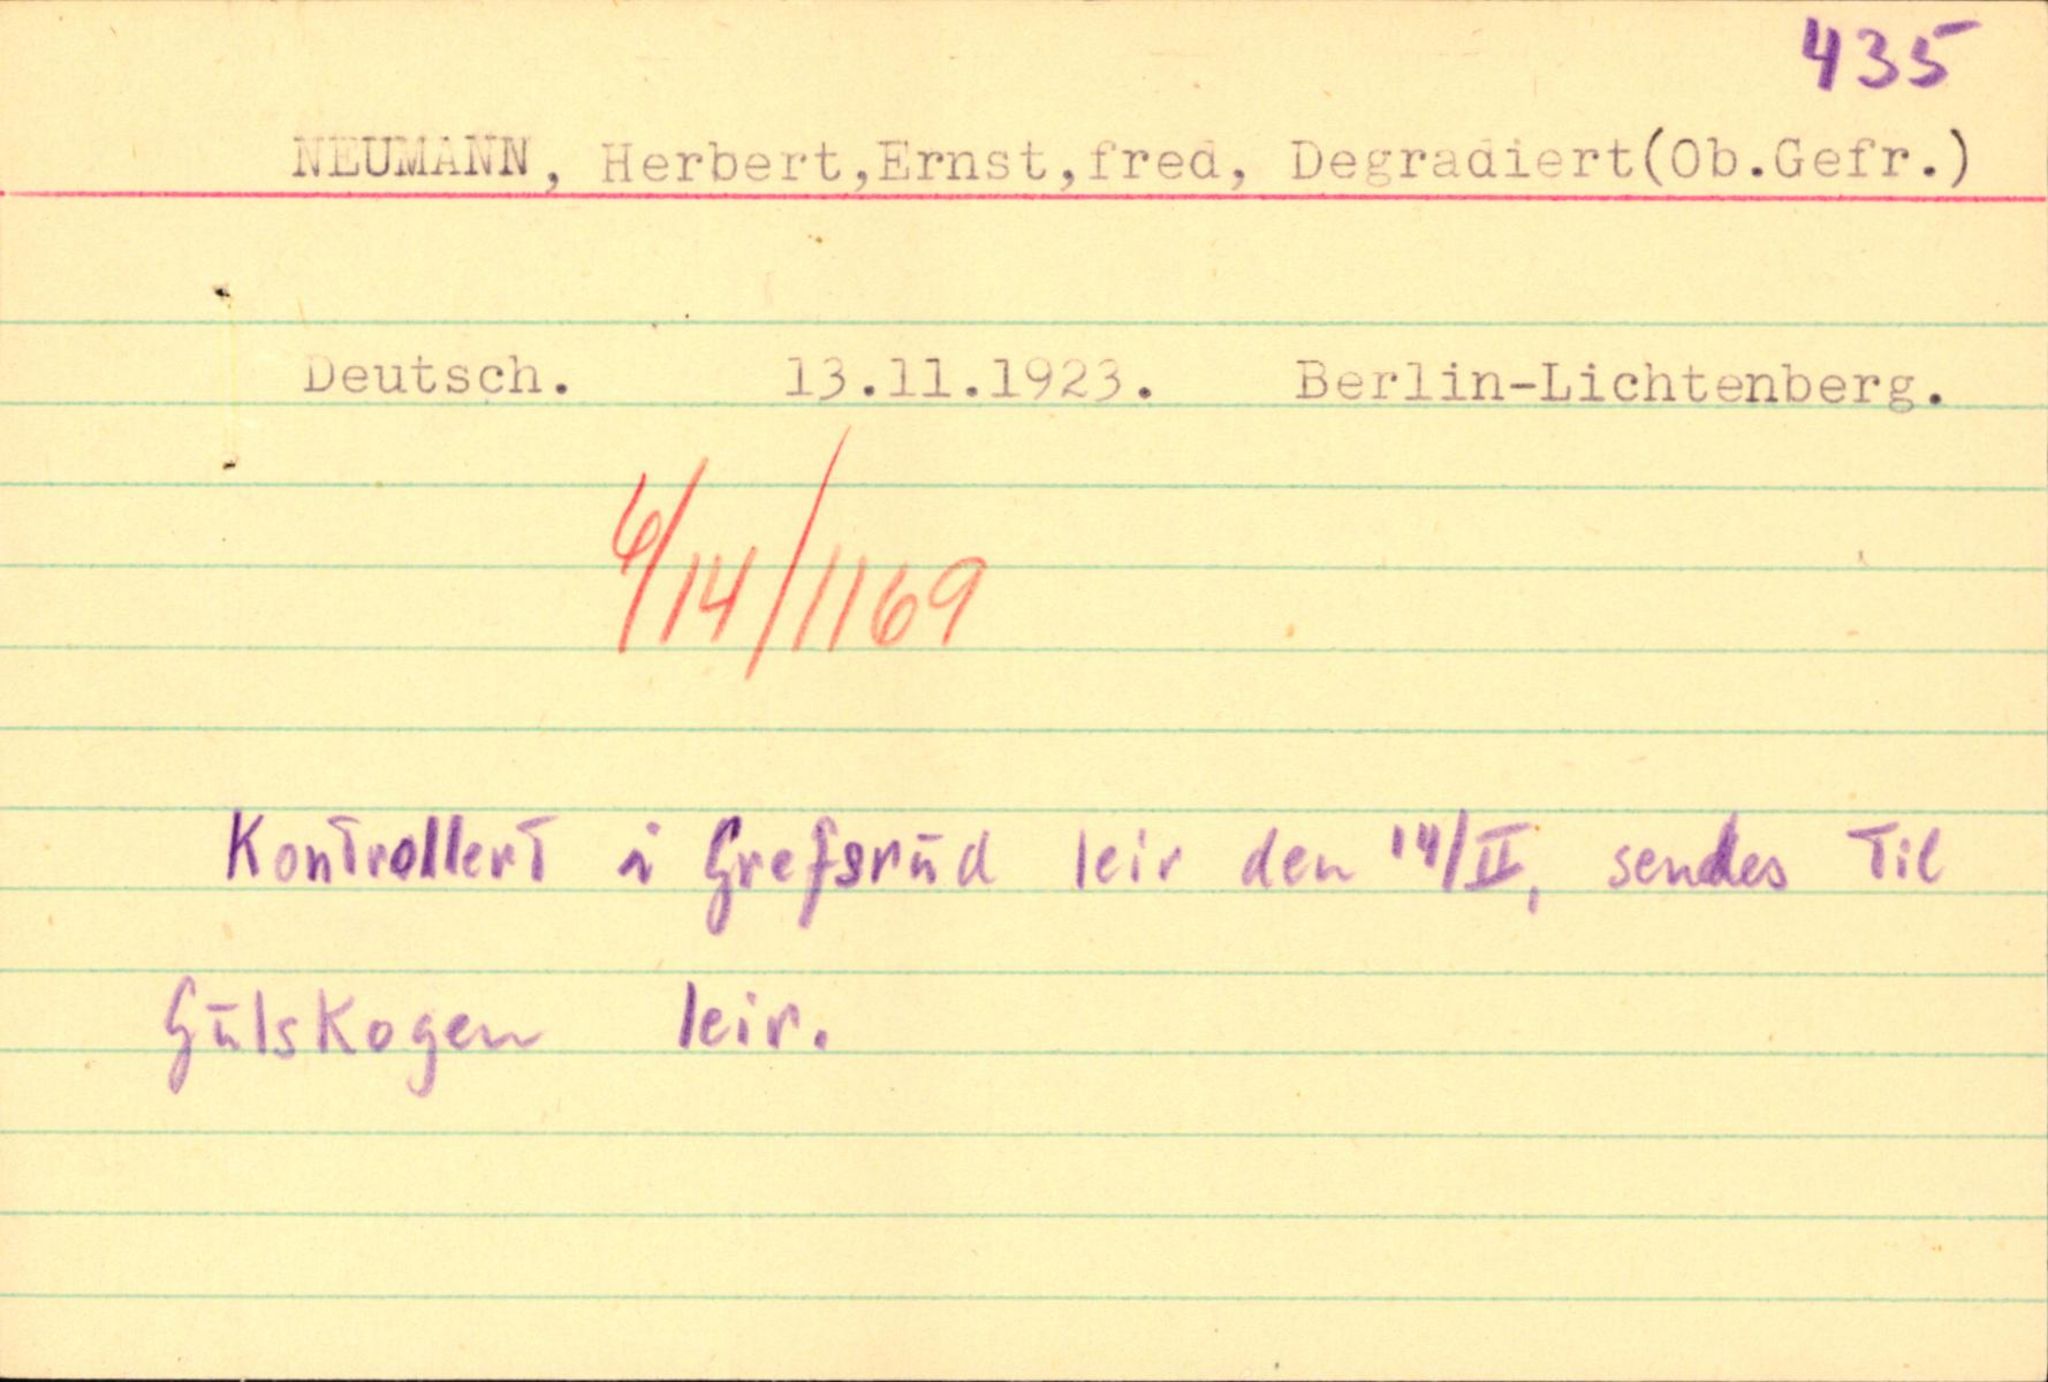 435
NEUMANN, Herbert,Ernst,fred, Degradiert(Ob.Gefr.)
Deutsch. 13.11.1923. Berlin-Lichtenberg.
6/14/1169
Kontrollert i Grefsrūd leir den 14/II, sendes Til
Gūlskogen leir.